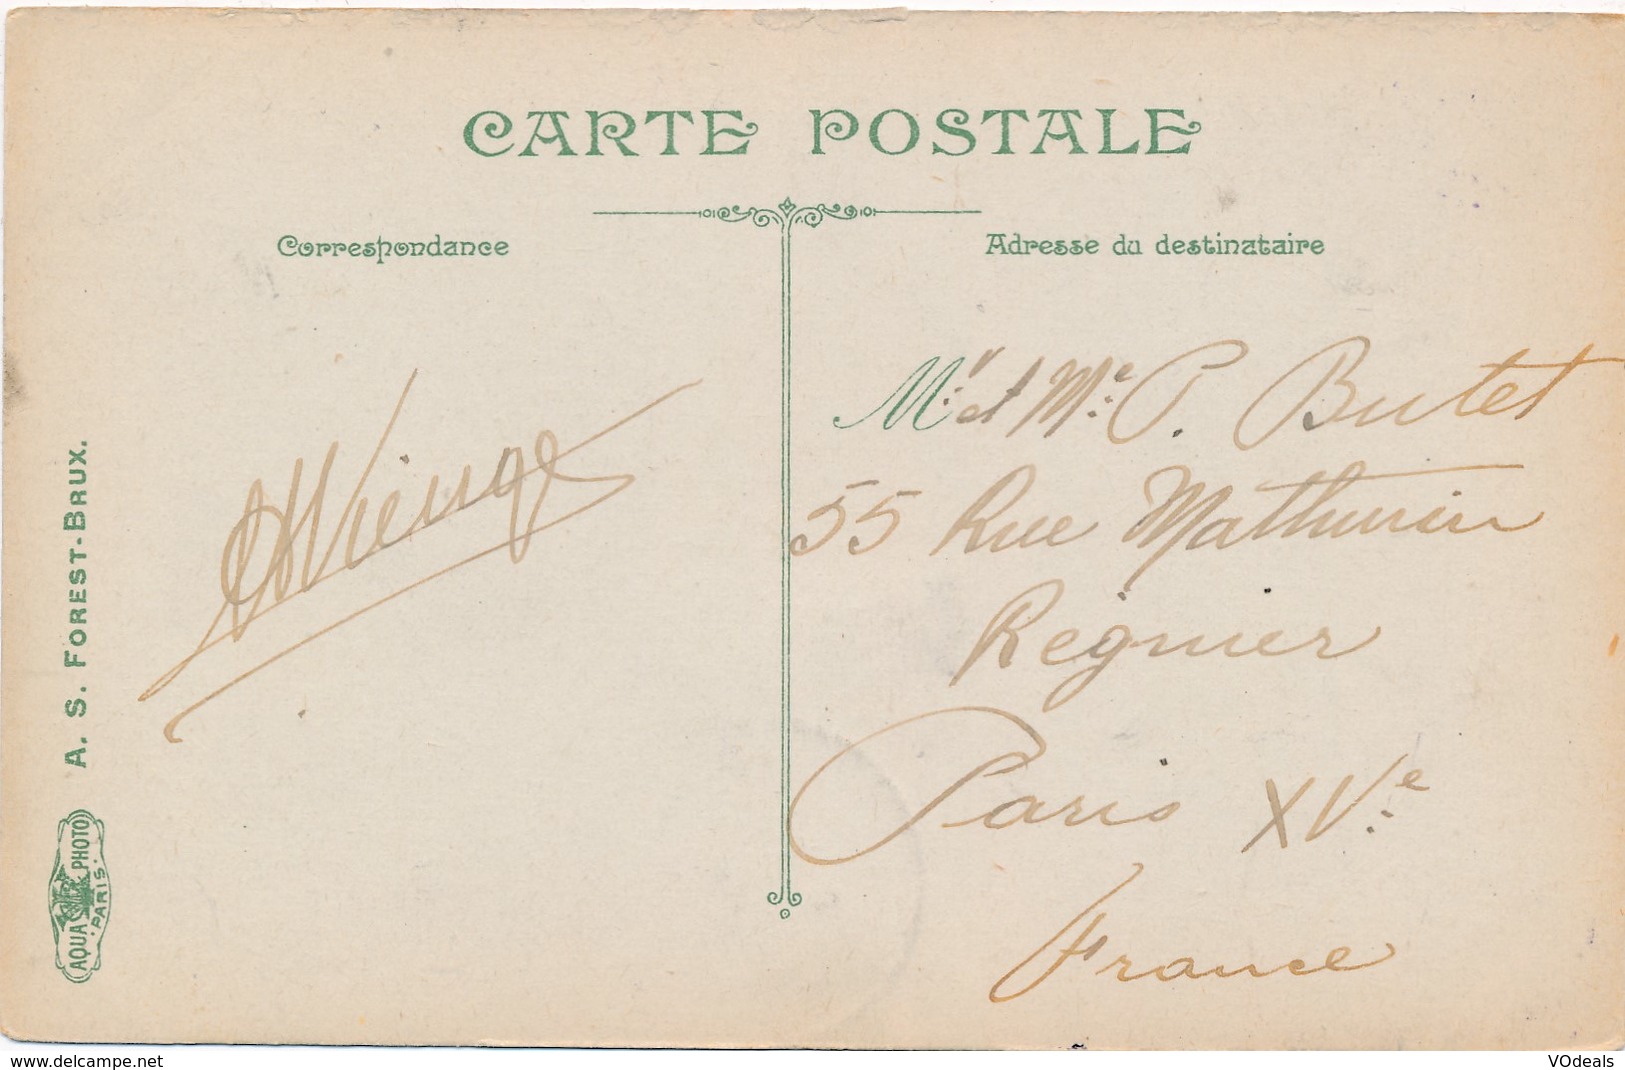 CARTE POSTALE
Correspondance
Adresse du destinataire
Mr. et Me. P. Butet
55 Rue Mathurin
Regnier
Paris XVe.
France
A. S. FOREST-BRUX.
AQUA PHOTO
PARIS
www.delcampe.net
VOdeals